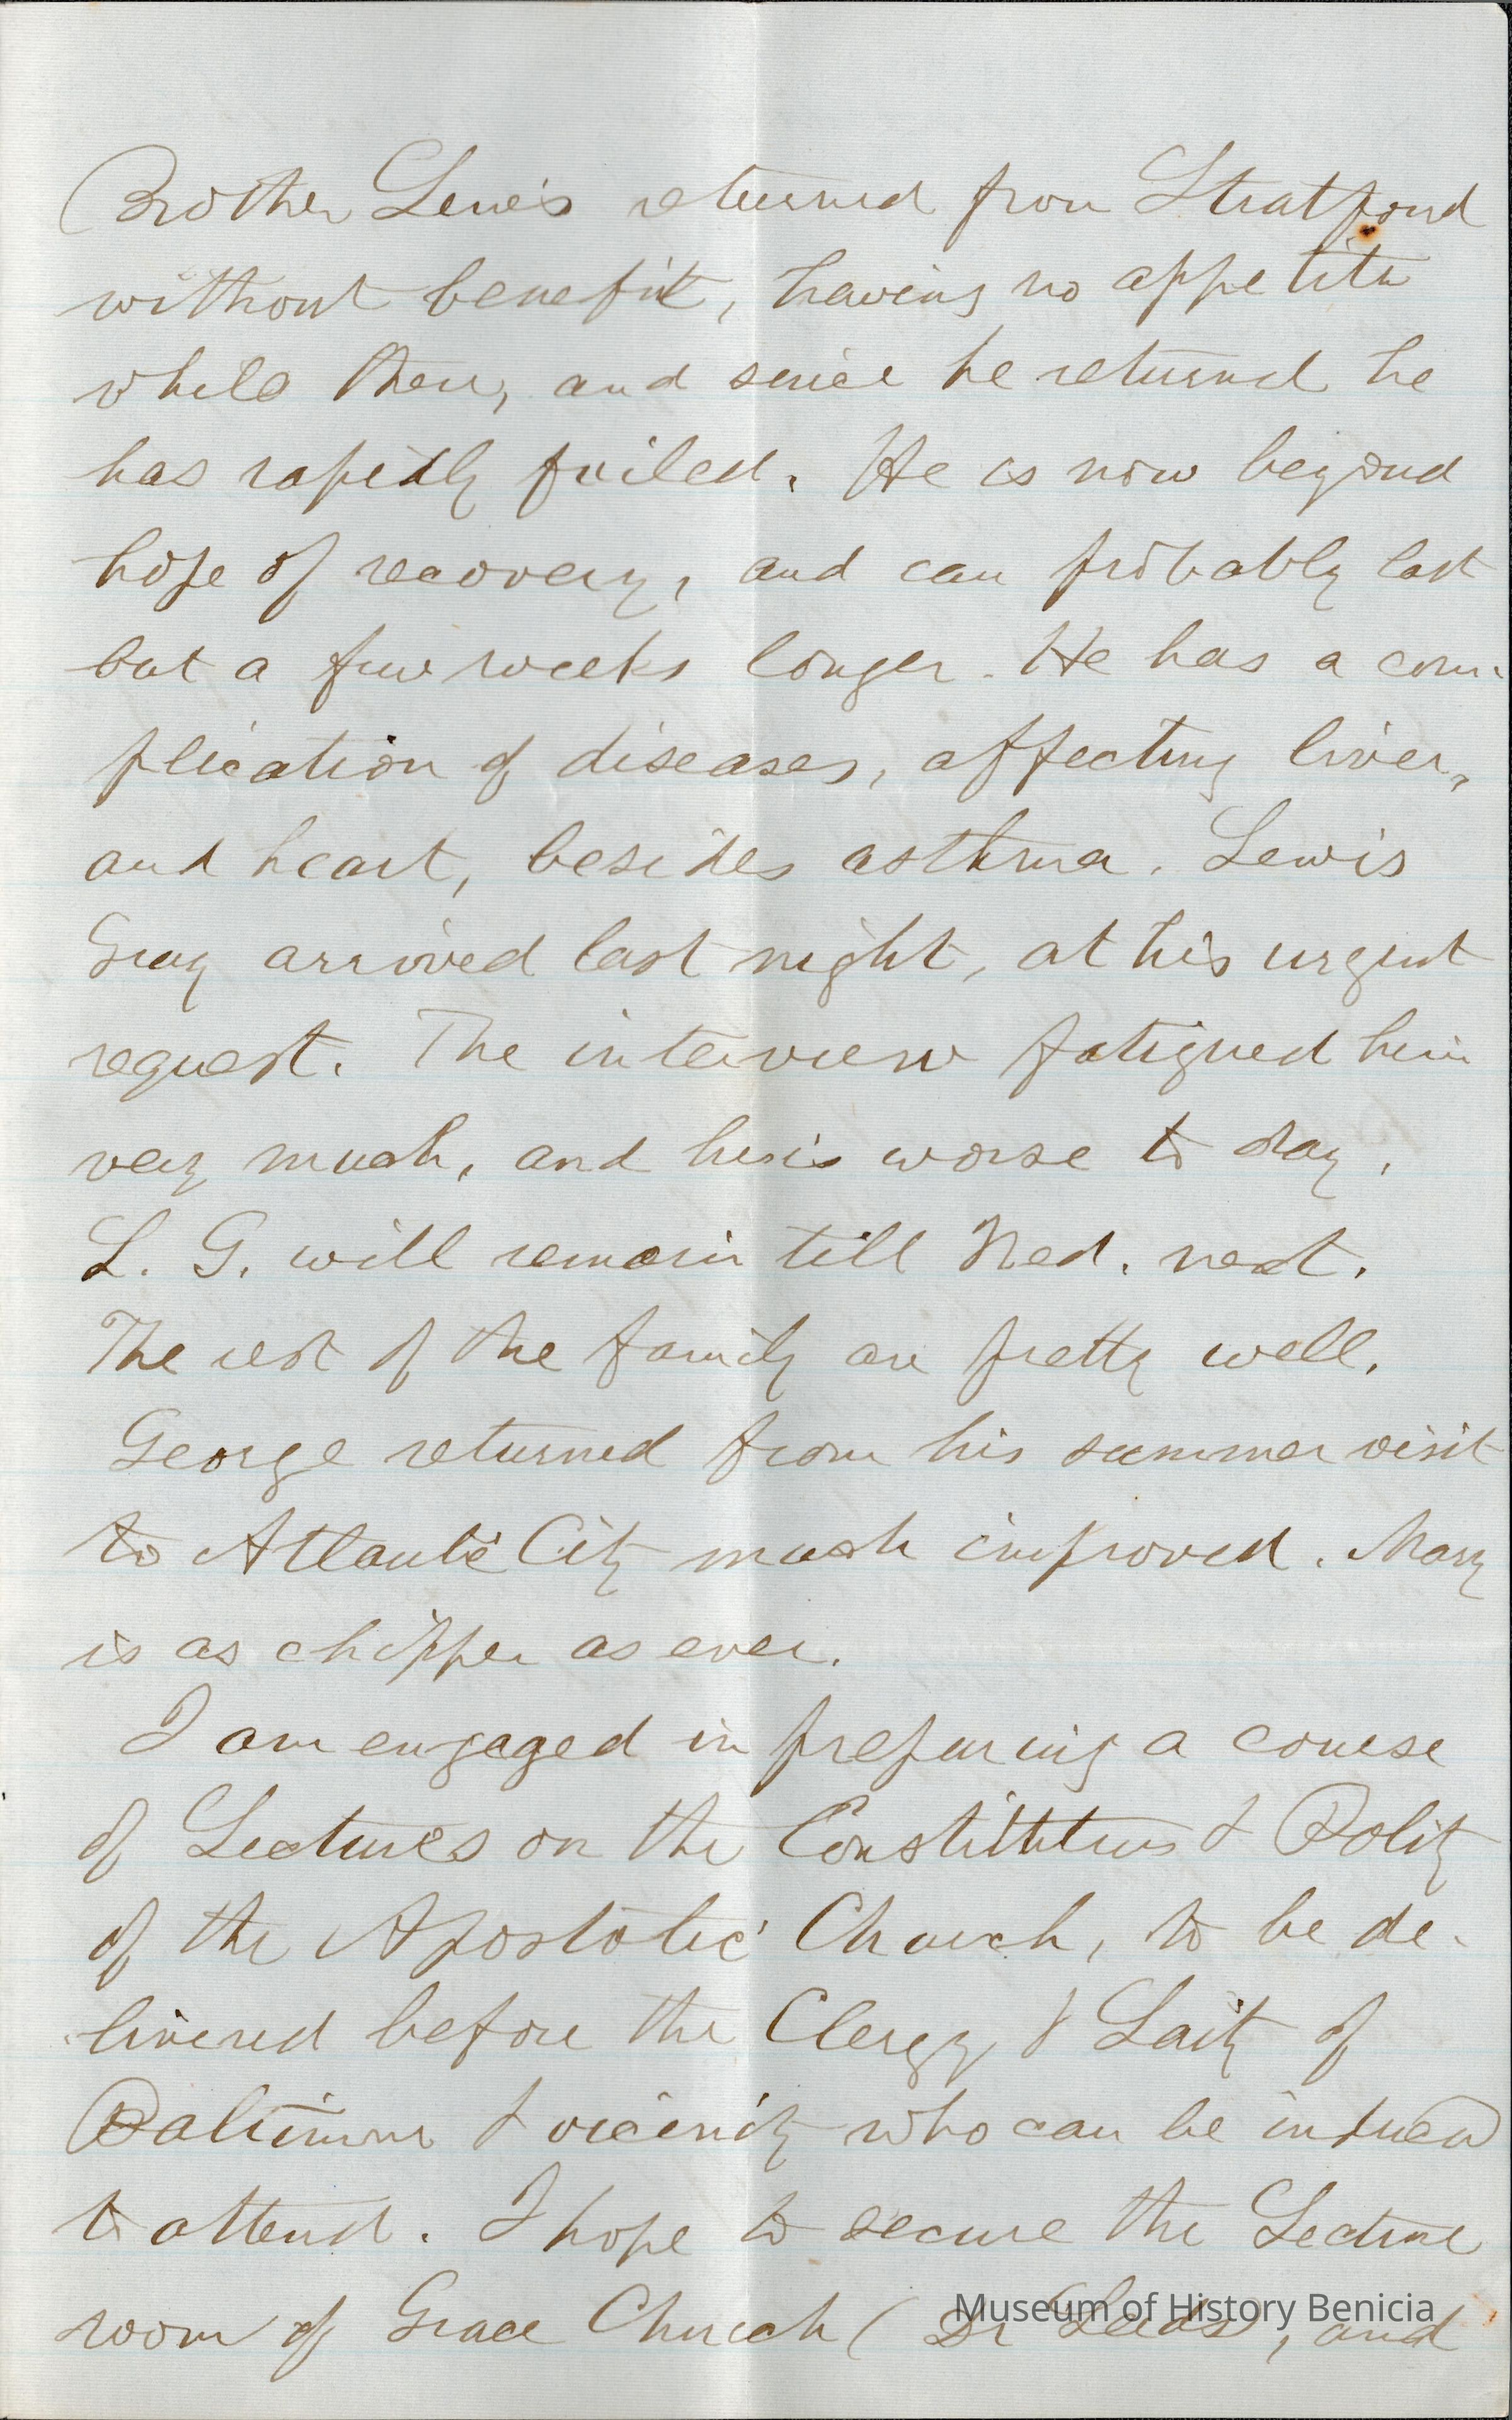 Brother Lewis returned from Stratford
without benefit, having no appetite
while there, and since he returned he
has rapidly failed. He is now beyond
hope of recovery, and can probably last
but a few weeks longer. He has a com-
plication of diseases, affecting liver,
and heart, besides asthma. Lewis
Gray arrived last night, at his urgent
request. The interview fatigued him
very much, and he is worse to day.
L. G. will remain till Wed. next.
The rest of the family are pretty well.
George returned from his summer visit
to Atlantic City much improved. Mary
is as chipper as ever.
I am engaged in preparing a course
of Lectures on the Constitution & Polity
of the Apostolic Church, to be de-
livered before the Clergy & Laity of
Baltimore & vicinity who can be induced
to attend. I hope to secure the Lecture
room of Grace Church (Dr Leeds), and
Museum of History Benicia